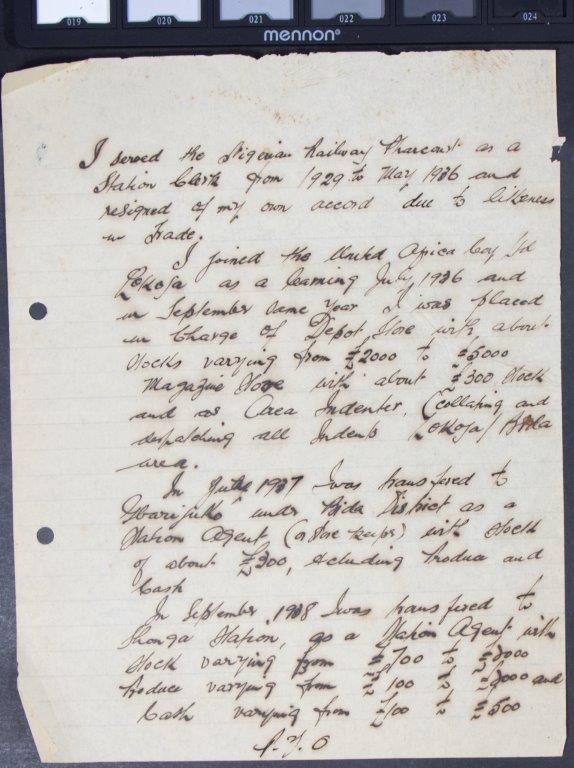 019 020 021 022 023 024
mennon®
I served the Nigerian Railway Pharcourt as a
Station Clerk from 1929 to May 1936 and
resigned of my own accord due to likeness
in Trade.
I joined the United Africa Coy Ltd
Lokoja as a learning July 1936 and
in September same year I was placed
in charge of Depot Store with about
stocks varying from £2000 to £5000
Magazine Store with about £300 stock
and as Area Indenter, (collating and
despatching all Indents Lokoja/Bida
area.
In 1937 I was transfered to
under Bida District as a
Station Agent (or store keeper) with stock
of about £300, excluding produce and
Cash
In September 1938 I was transfered to
Shonga Station, as a Station Agent with
stock varying from £700 to
produce varying from £100 to and
Cash varying from £100 to £500
P.T.O